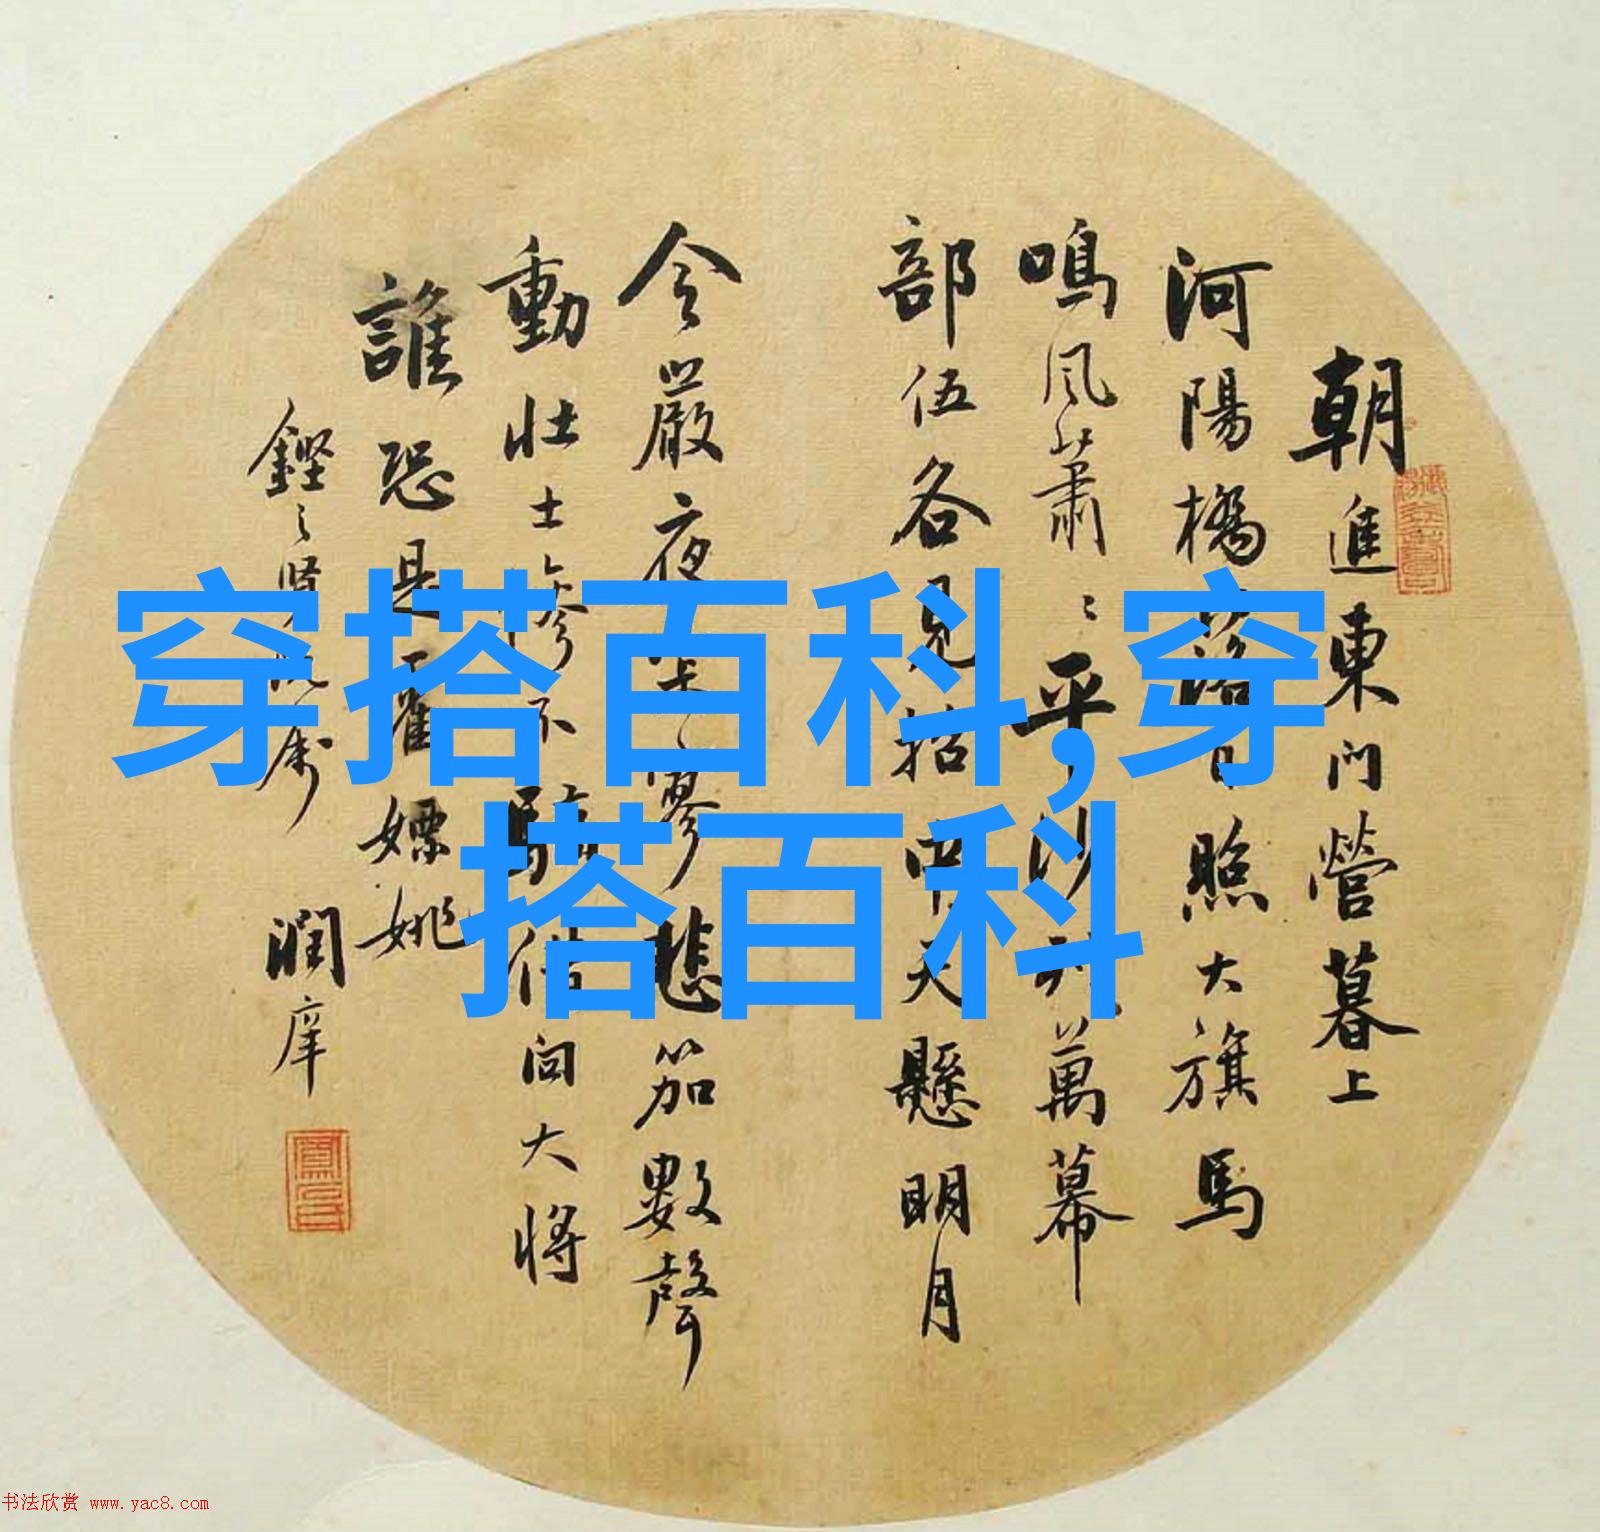 朝進東門營暮上
河陽橋落日照大旗馬
鳴風蕭〻平沙列萬幕
部伍各見招中天懸明月
令嚴夜寂寥悲笳數聲
動壯士慘不驕借問大將
誰恐是霍嫖姚
鏗
潤庠
穿搭百科,穿
搭百科
书法欣赏 www.yac8.com